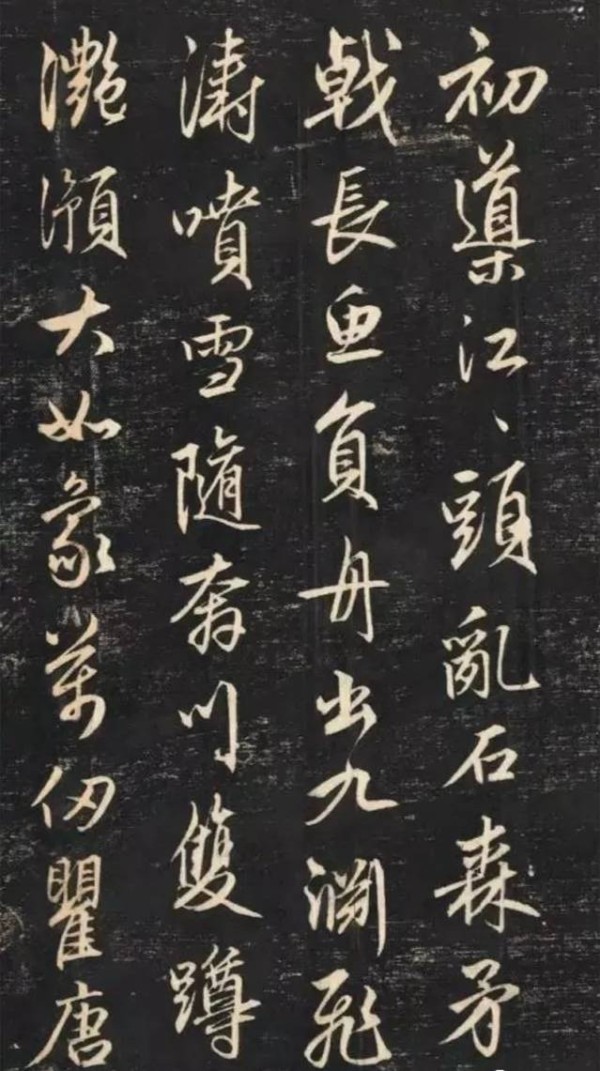 初導江、頭亂石森矛
戟長魚負舟出九淵飛
濤噴雪隨奔川雙蹲
灔澦大如象萬仞瞿唐